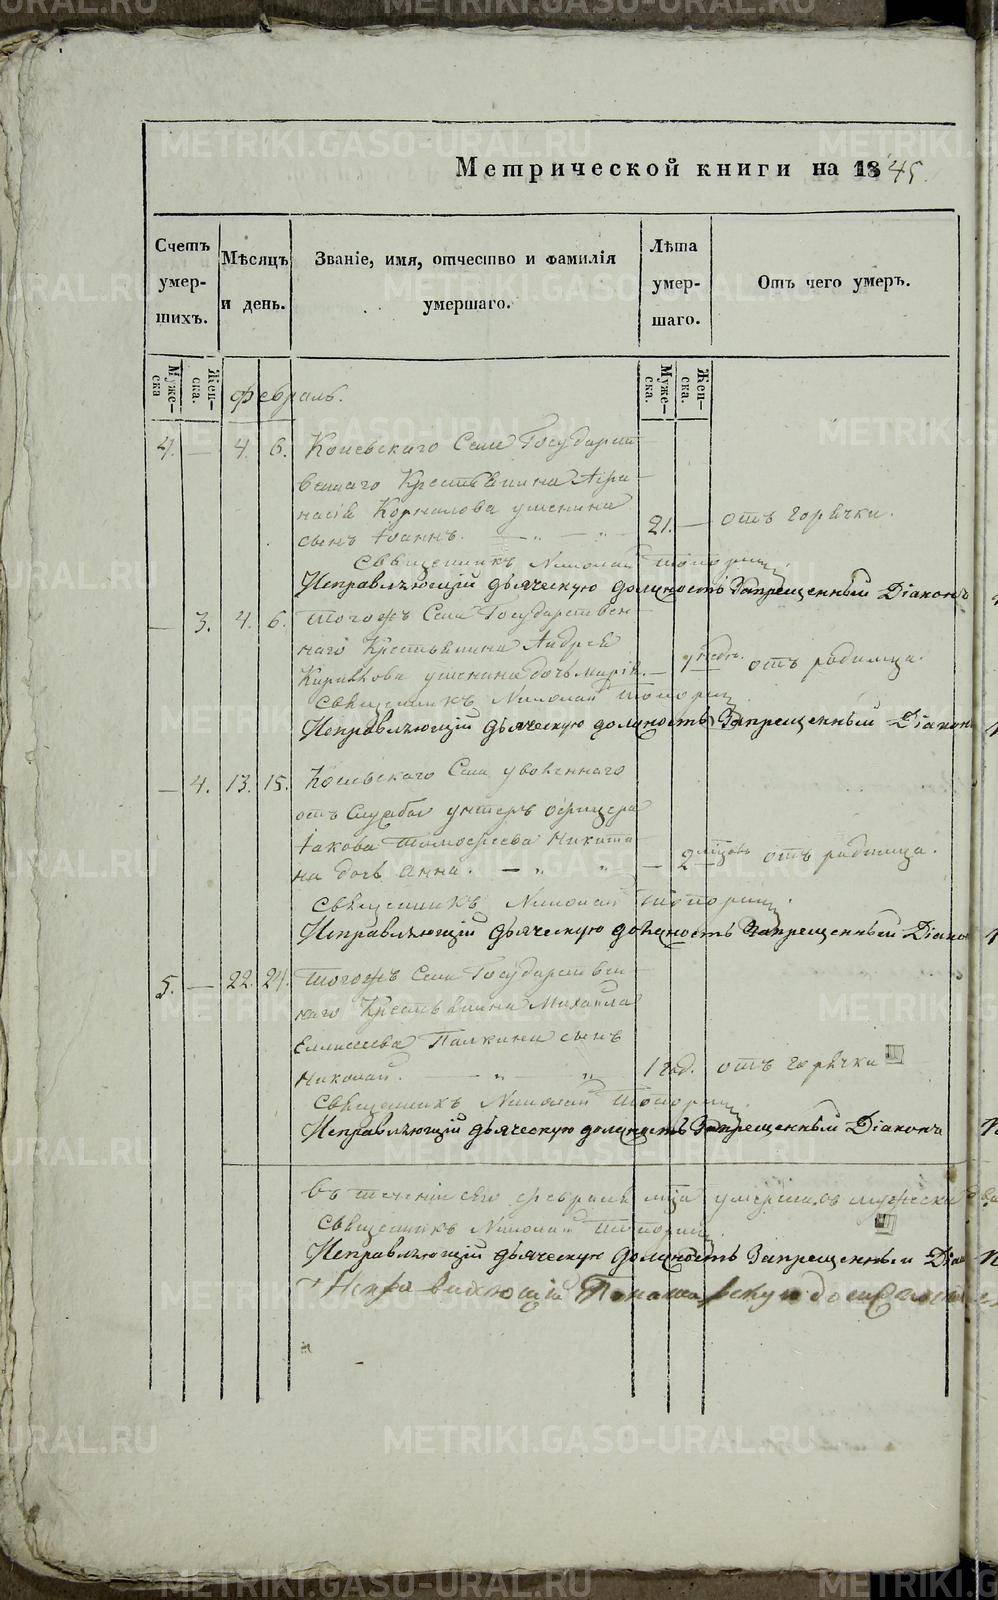 Метрической книги на 1845.
Счетъ умер- шихъ.
Мѣсяцъ и день.
Званіе, имя, отчество и фамилія умершаго.
Лѣта умер- шаго.
Отъ чего умеръ.
Муже- ска
Жен- ска.
Муже- ска.
Жен- ска.
Февраль.
4. — 4. 6. Коневскаго Села Государст-
веннаго Крестьянина Афа-
насія Корнилова
сынъ Іоаннъ. 21. — отъ горячки.
Священникъ Николай Топорищ
Исправляющій дьяческую должность Запрещенный Діаконъ
— 3. 4. 6. Тогожъ Села Государствен-
наго Крестьянина Андрея
дочь Марія. — отъ родимца.
Священникъ Николай Топорищ
Исправляющій дьяческую должность Запрещенный Діаконъ
— 4. 13. 15. Коневскаго Села уволеннаго
отъ Службы унтеръ офицера
Іакова Тимофеева Никити-
на дочь Анна. — 2 мѣсяцовъ отъ родимца.
Священникъ Николай Топорищ
Исправляющій дьяческую должность Запрещенный Діако
5. — 22. 24. Тогожъ Села Государствен-
наго Крестьянина Михайла
Елисеева Палкина сынъ
Николай. 1 год. отъ горячки
Священникъ Николай Топорищ
Исправляющій дьяческую должность Запрещенный Діаконъ
Въ теченіи сего февраля мца умершихъ мужеска два
Священникъ Николай Топорищ
Исправляющій дьяческую должность Запрещенный Діа
Исправляющій Пономарскую должность
METRIKI.GASO-URAL.RU